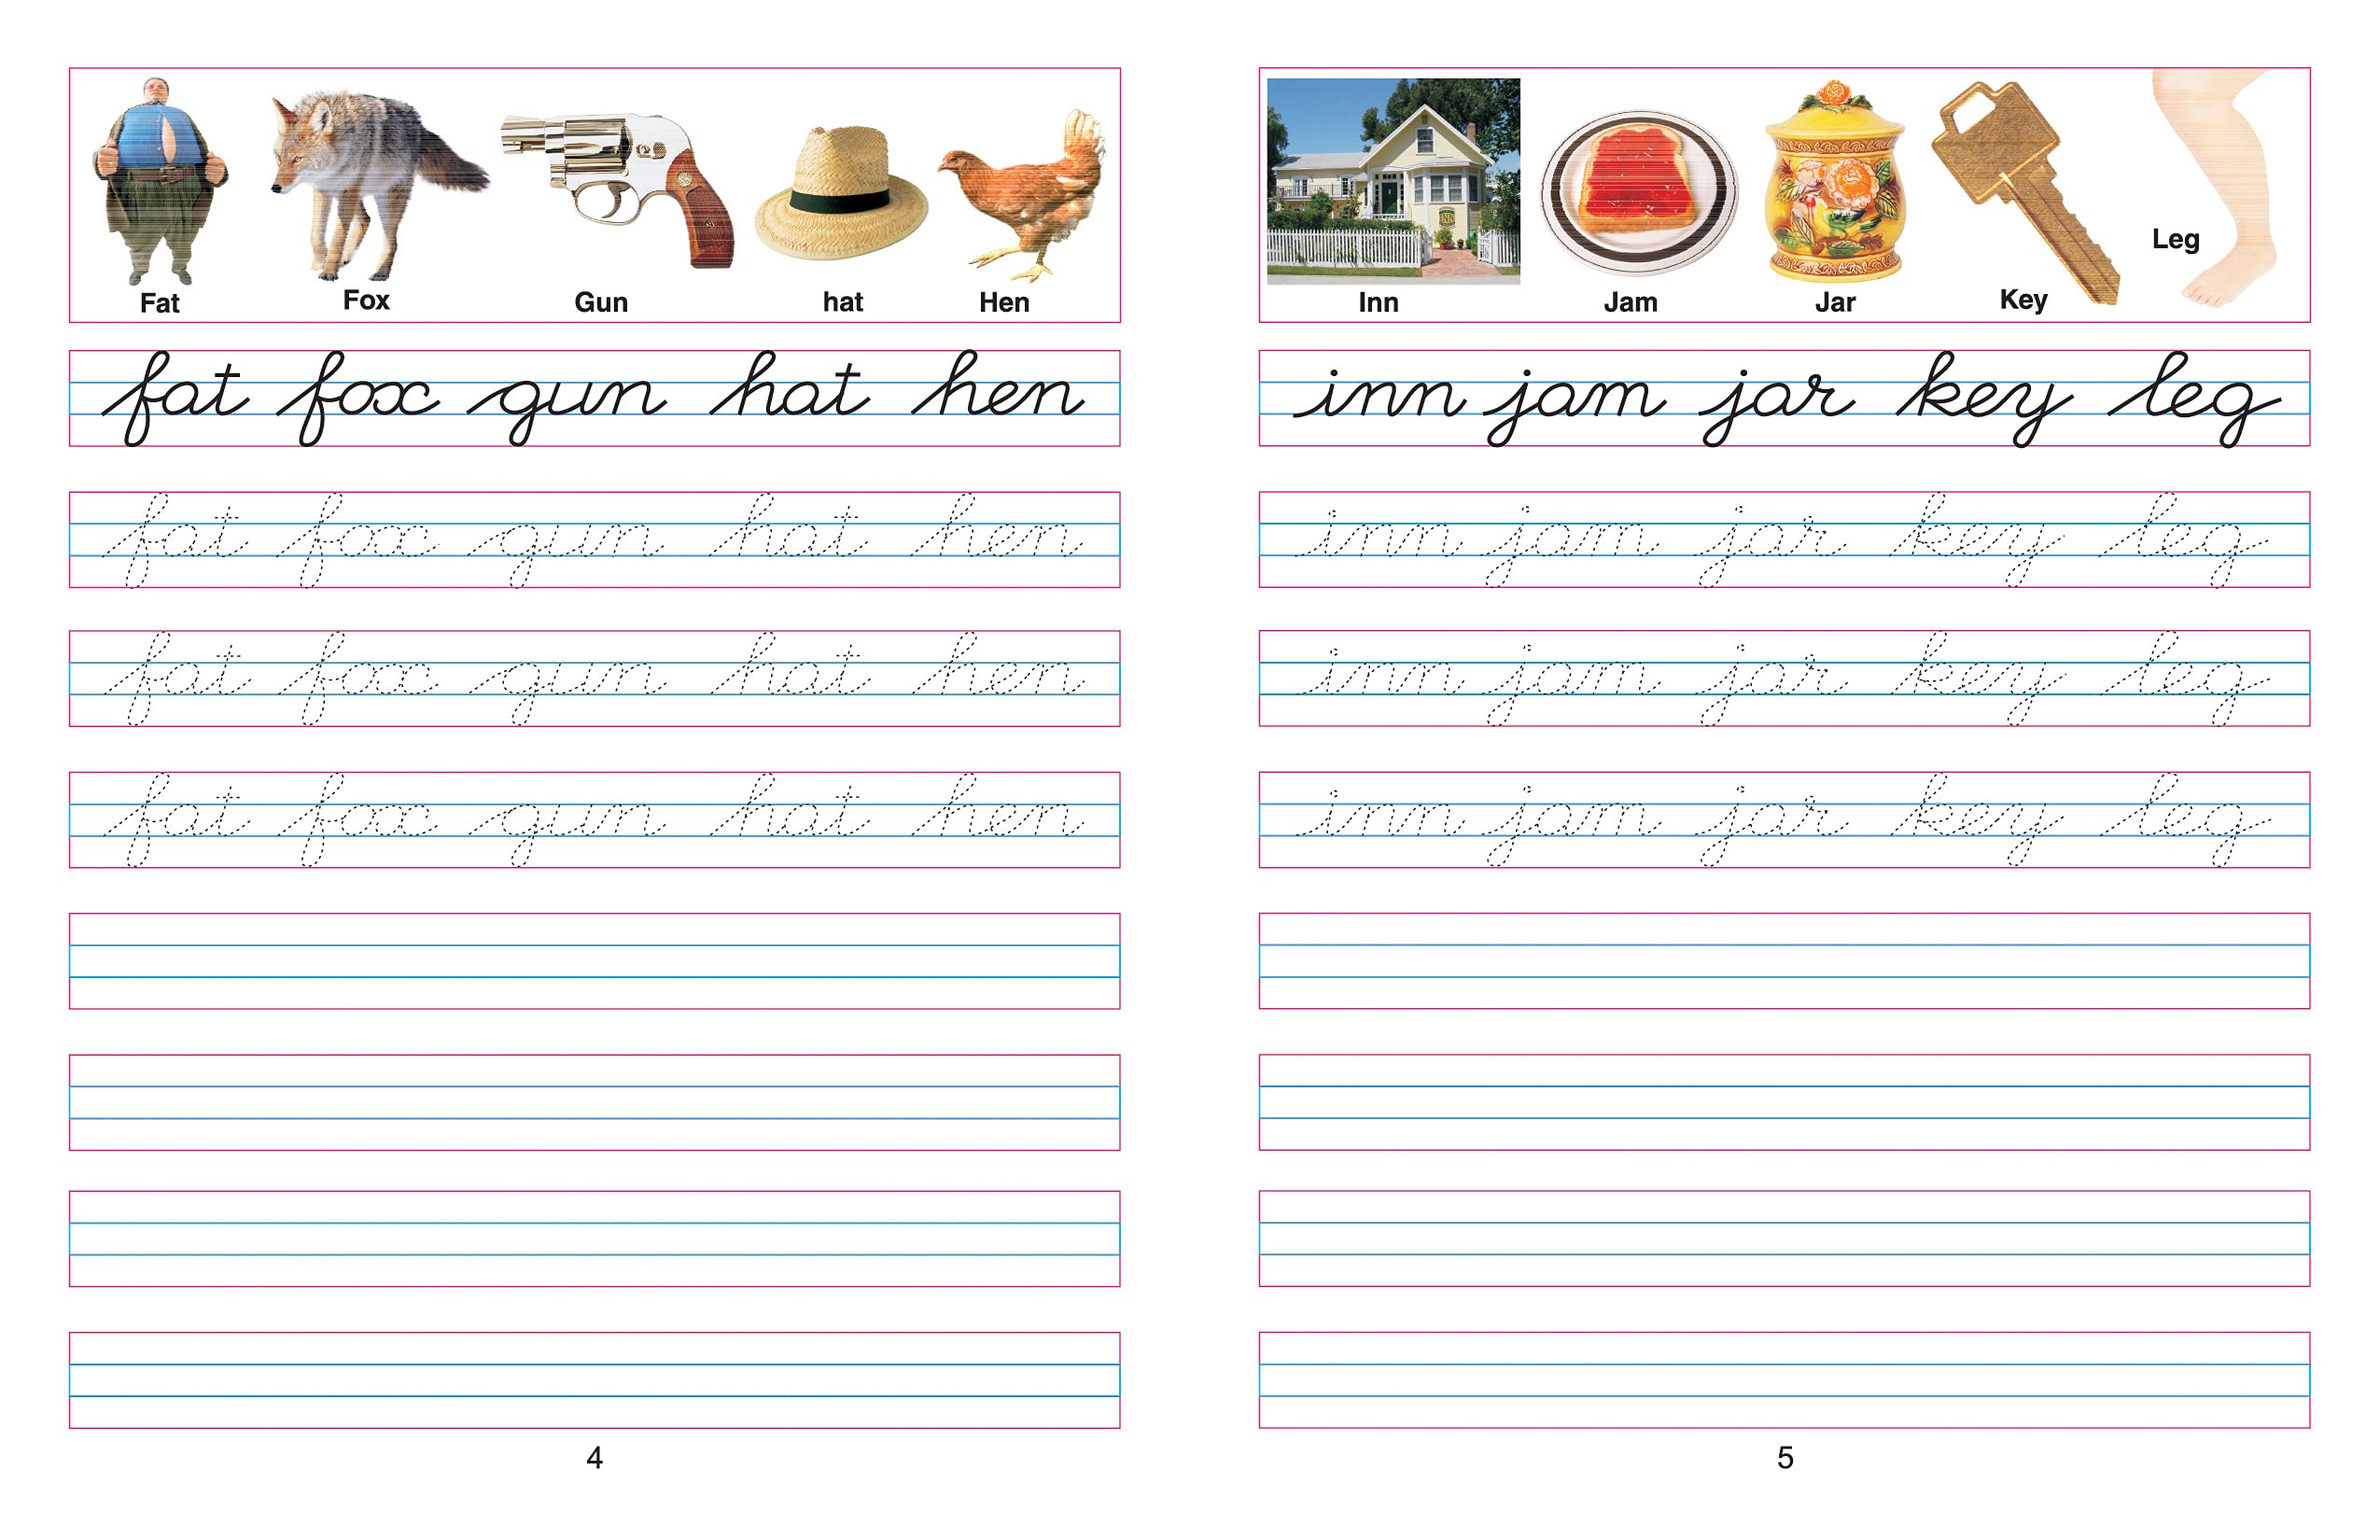 Fat Fox Gun hat Hen
fat fox gun hat hen
fat fox gun hat hen
fat fox gun hat hen
fat fox gun hat hen
4
Inn Jam Jar Key Leg
inn jam jar key leg
inn jam jar key leg
inn jam jar key leg
inn jam jar key leg
5